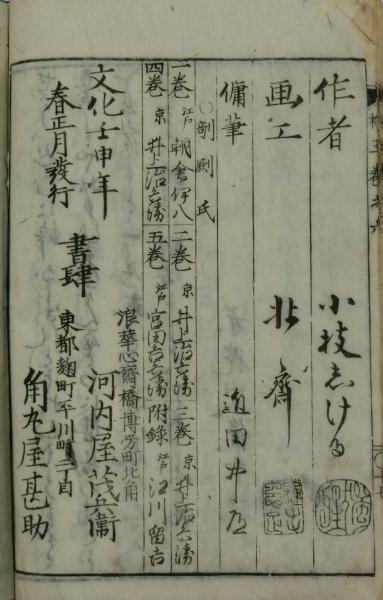 作者 小枝志げる
画工 北齋
傭筆
〇剞劂氏
一巻 江戸 朝倉伊八
二巻 京 井上治兵衛
三巻 京 井上治兵衛
四巻 京 井上治兵衛
五巻 江戸 宮田吉兵衛
附録 江戸 江川留吉
文化壬申年
春正月發行
書肆
浪華心齋橋博労町北角
河内屋茂兵衛
東都麹町平川町二丁目
角丸屋甚助